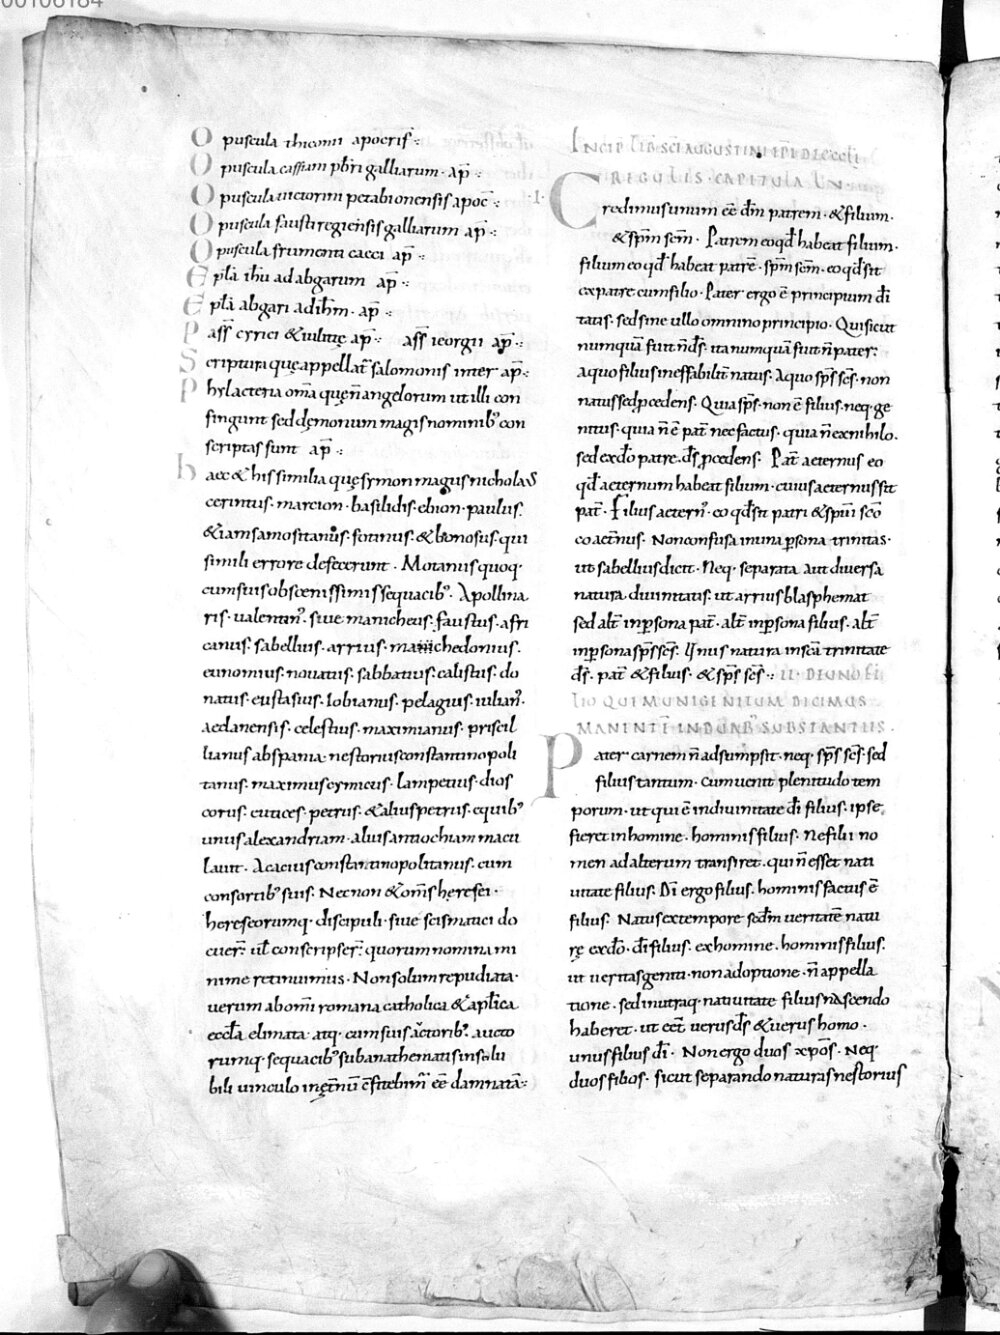 00106184
Opuscula thiconii apocrif
Opuscula cassiani p̄bri galliarum · ap̄
Opuscula uictorini petabionensis apoc̄
Opuscula fausti regiensis galliarum ap̄
Opuscula frumenti caeci ap̄
Ep̄la ih̄u ad abgarum ap̄
Ep̄la abgari ad ih̄m · ap̄
Pass̄ cyrici & iulitę ap̄ · Pass̄ ieorgii ap̄
Scriptura quę appellat̄ salomonis inter ap̄
Phylacteria om̄a quę n̄ angelorum ut illi con
fingunt sed dęmonum magis nominib; con
scripta s sunt ap̄
haec & his similia quę symon magus nicholaS
cerintus · marcion · basilidis · ebion · paulus ·
& iam samositanus · fotinus · & bonosus · qui
simili errore defecerunt · Motanus quoq·
cum suis obscenissimis sequacib; · Apollina
ris · ualentin; · siue manicheus · faustus · afri
canus · sabellius · arrius · machedonius ·
eunomius · nouatus · sabbatius · calistus · do
natus · eustasius · Iobianus · pelagius · iulian; ·
aedanensis · celestius · maximianus · priscil
lianus ab spania · nestorius constantinopoli
tanus · maximus cynicus · Lampetius · dios
corus · eutices · petrus · & alius petrus · e quib;
unus alexandriam · alius antiochiam macu
lauit · Acacius constantinopolitanus · cum
consortib; suis · Necnon & om̄s heresei ·
hereseorumq· discipuli · siue scismatici do
cuer̄ · ul̄ conscripser̄ · quorum nomina mi
nime retinuimus · Non solum repudiata ·
uerum abom̄ romana catholica & apl̄ica
eccl̄a elimata · atq· cum suis actorib; · aucto
rumq· sequacib; sub anathematis insolu
bili uinculo in ęt̄nū
INCIP LIB SCI AUGUSTINI EPI DE
CAPITULA
·I· Credimus unum eē dm̄ patrem · & filium ·
& sp̄m sc̄m · Patrem eo qđ habeat filium ·
filium eo qđ habeat patrē · sp̄m sc̄m · eo qđ sit
ex patre cum filio · Pater ergo ē principium di
tatis · sed sine ullo omnino principio · Qui sicut
numquā fuit n̄ d̄s · ita numquā fuit n̄ pater ·
a quo filius ineffabilit̄ natus · A quo sp̄s sc̄s · non
natus sed pcedens · Quia sp̄s · non ē filius · neq· ge
nitus · quia n̄ ē pat̄ nec factus · quia n̄ ex nihilo ·
sed ex do patre · d̄s pcedens · Pat̄ aeternus eo
qđ aeternum habeat filium · cuius aeternus sit
pat̄ · Filius aetern; · eo qđ sit patri & sp̄ui sc̄o
coaet̄nus · Non confusa in una psona trinitas ·
ut sabellius dicit · Neq· separata aut diuersa
natura diuinitatis · ut arrius blasphemat
sed alt̄ in psona pat̄ · alt̄ in psona filius · alt̄
in psona sp̄s sc̄s · Unus natura in sc̄a trinitate
d̄s · pat̄ & filius · & sp̄s sc̄s · II · DE UNO FI
LIO QUEM UNIGENITUM DICIMUS
MANENTE IN DUAB; SUBSTANTIIS
Pater carnem n̄ adsumpsit · neq· sp̄s sc̄s · sed
filius tantum · Cum uenit plenitudo tem
porum · ut qui ē in diuinitate di filius · ipse
fieret in homine · hominis filius · Ne filii no
men ad alterum transiret · qui n̄ esset nati
uitate filius · Di ergo filius · hominis factus ē
filius · Natus ex tempore scdm ueritatē natu
rę ex do · di filius · ex homine · hominis filius ·
ut ueritas geniti · non adoptione · n̄ appella
tione · sed in utraq· natiuitate filius nascendo
haberet · ut eēt uerus d̄s & uerus homo ·
unus filius di · Non ergo duos xpōs · Neq·
duos filios · sicut separando naturas nestorius